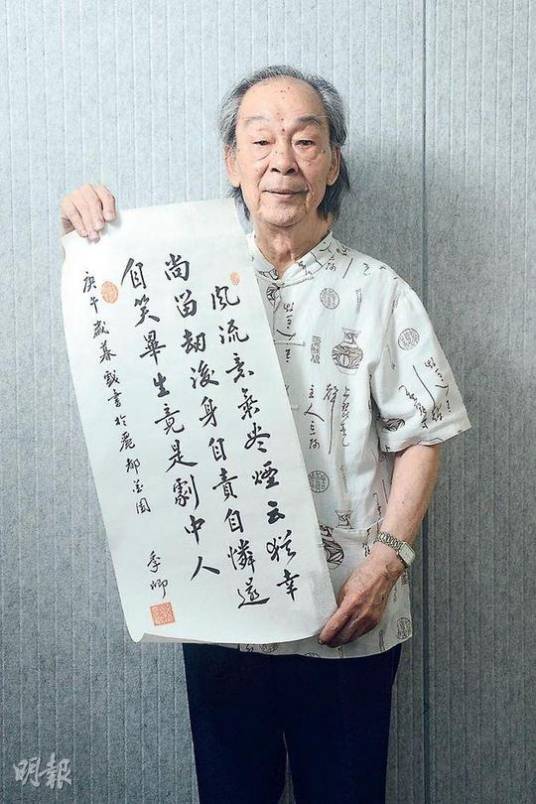 風流意氣尽煙云猶幸
尚留劫後身自責自憐遂
自笑畢生竟是劇中人
庚午歲暮戲書於麗都花園
季卿
明報